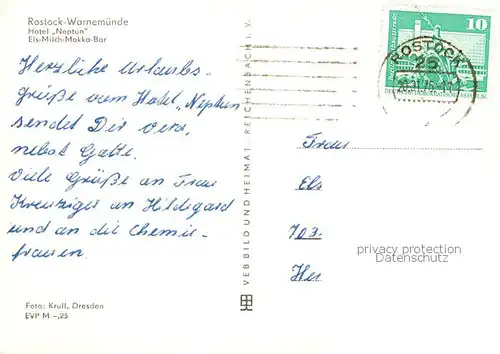 Rostock-Warnemünde
Hotel „Neptun"
Eis-Milch-Mokka-Bar
Herzliche Urlaubs-
grüße vom Hotel „Neptun
sendet Dir Vera,
nebst Gatte.
Viele Grüße an Frau
Kreuziger an Hildegard
und an die Chemie-
frauen.
Foto: Krull, Dresden
EVP M –,25
VEB BILD UND HEIMAT REICHENBACH I. V.
10
ROSTOCK
25
Frau
Els
703
Her
privacy protection
Datenschutz